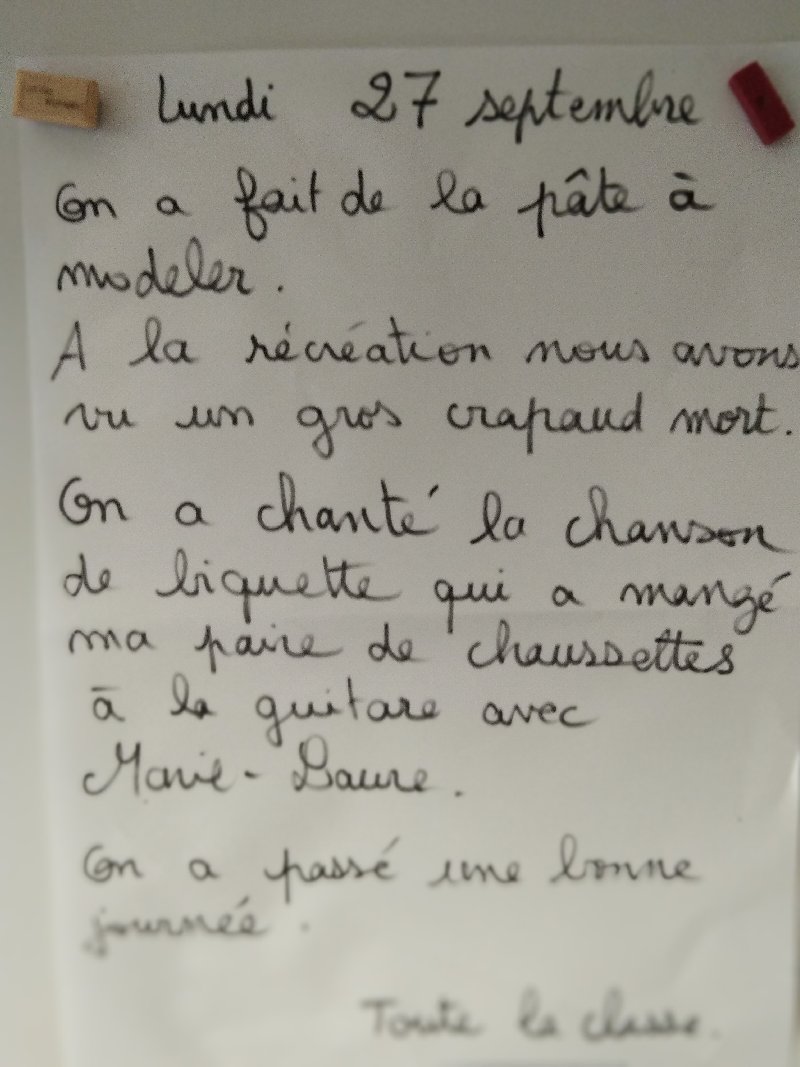 Lundi 27 septembre
On a fait de la pâte à
modeler.
A la récréation nous avons
vu un gros crapaud mort.
On a chanté la chanson
de biquette qui a mangé
ma paire de chaussettes
à la guitare avec
Marie-Laure.
On a passé une bonne
journée.
Toute la classe.